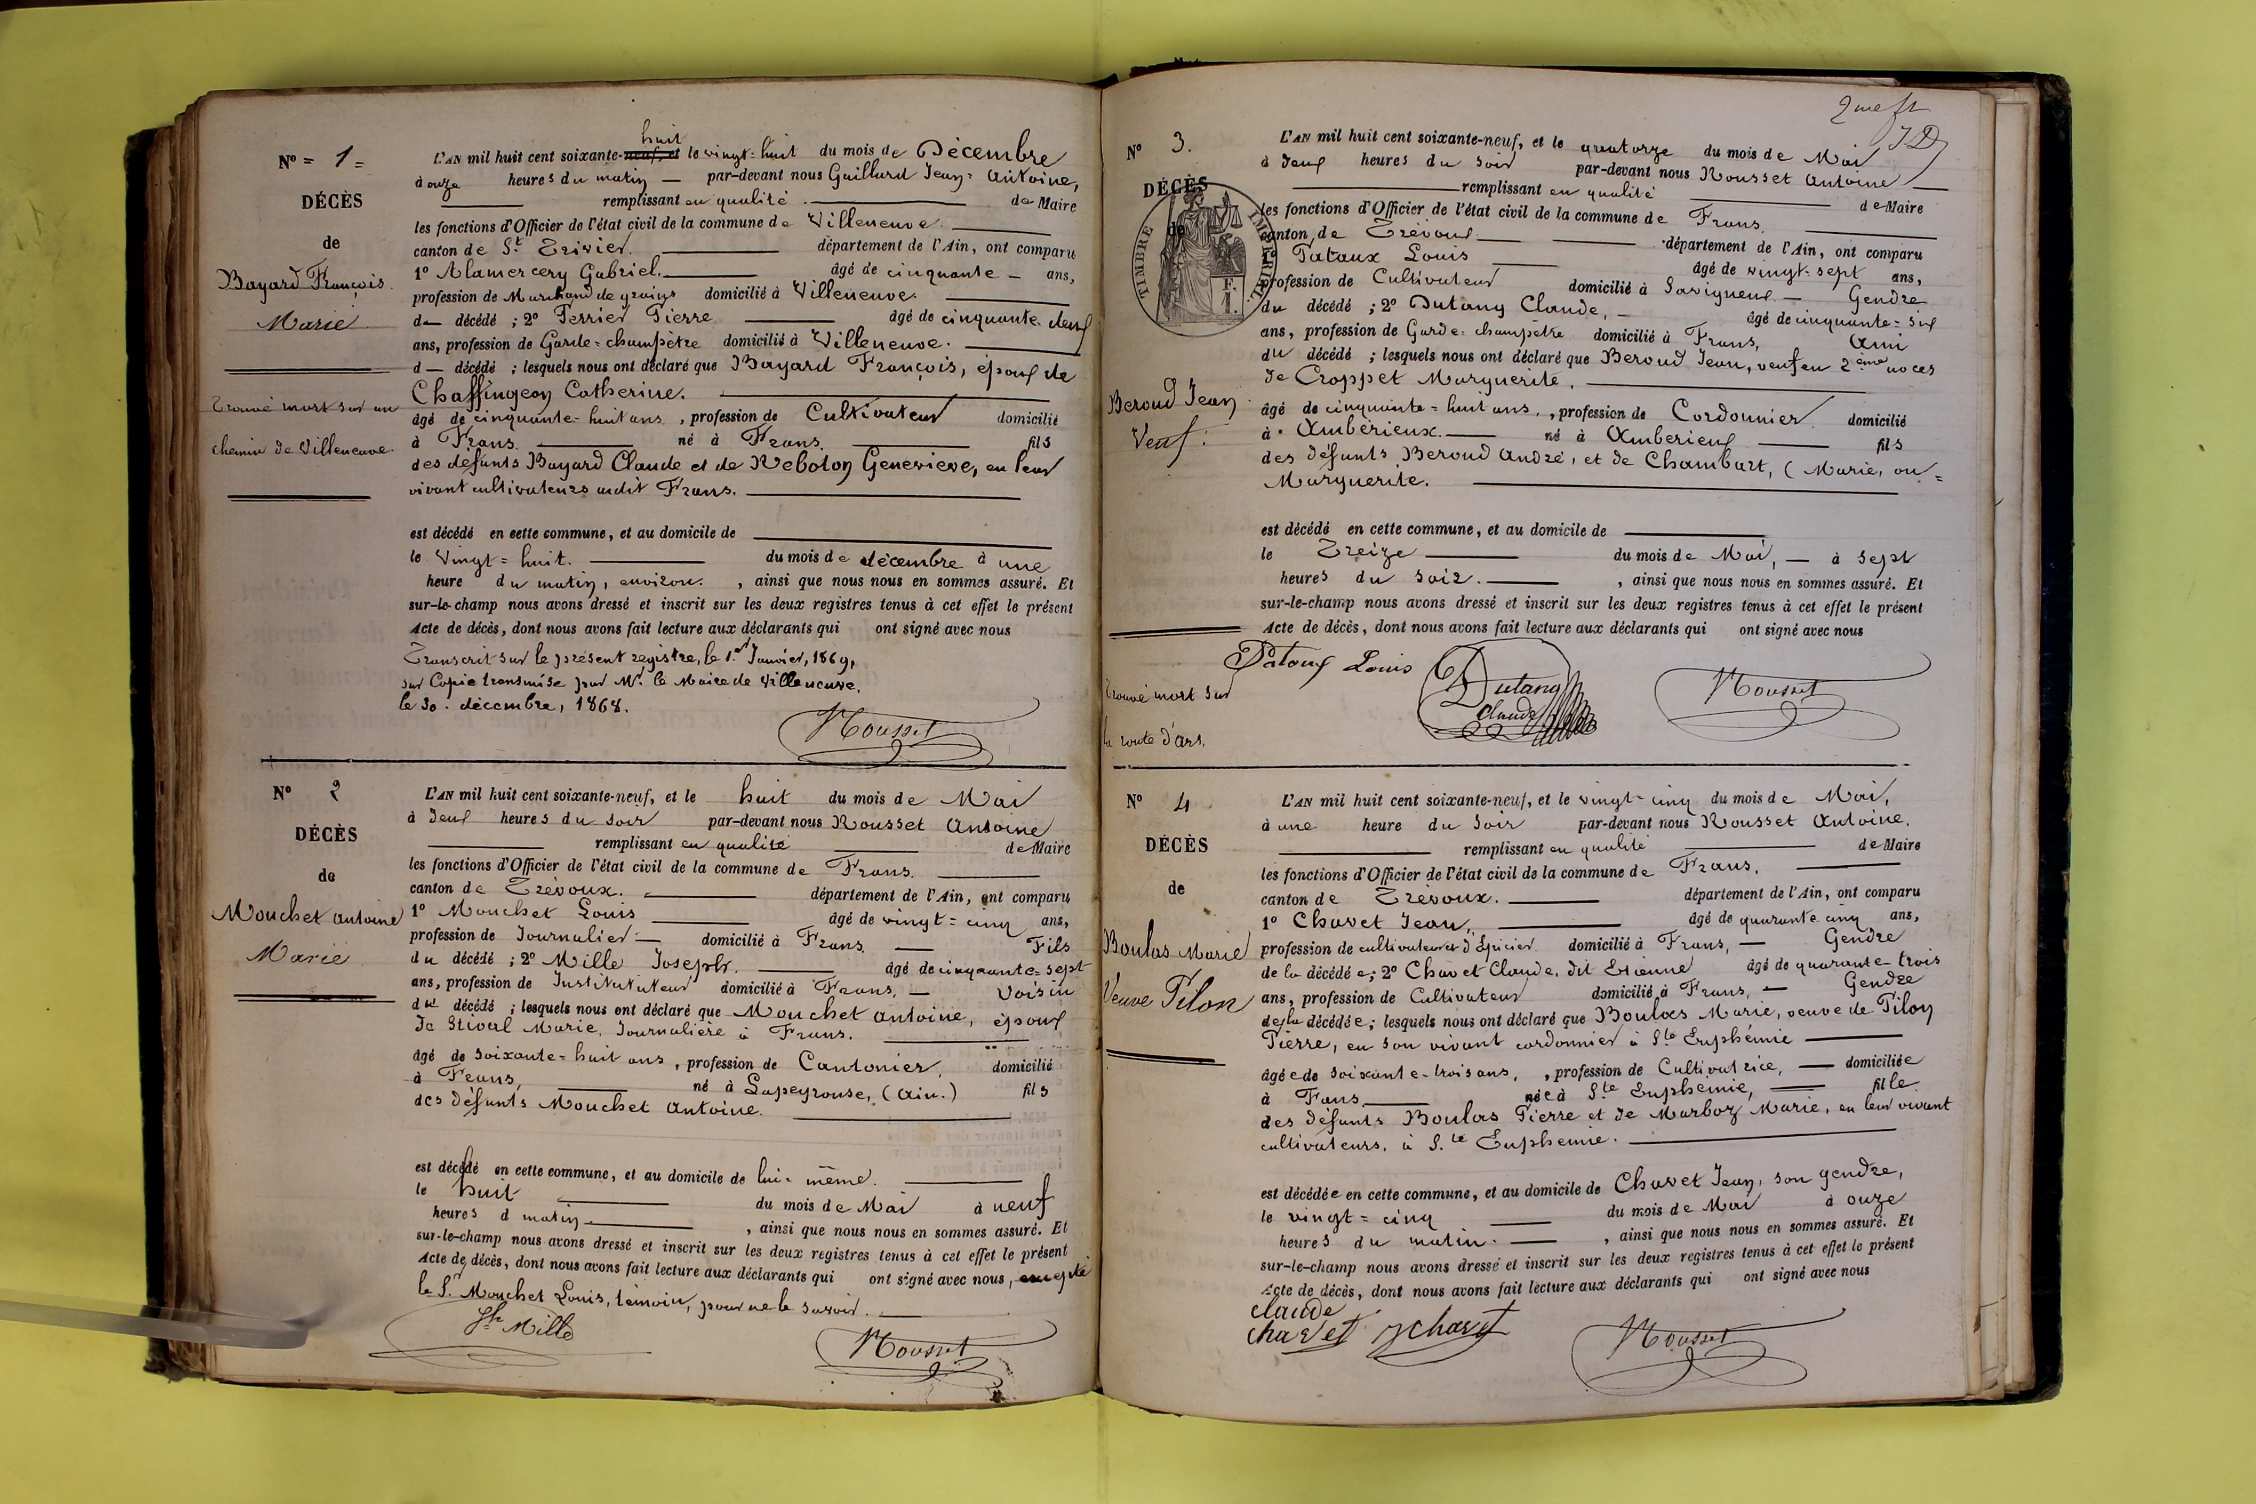 Nº = 1 =
DÉCÈS
de
Bayard François
Marié
Trouvé mort sur un
chemin de Villeneuve.
huit
L'AN mil huit cent soixante-neuf, et le vingt-huit du mois de Décembre
à onze heures du matin — par-devant nous Gaillard Jean-Antoine,
remplissant en qualité de Maire
les fonctions d'Officier de l'état civil de la commune de Villeneuve
canton de St Trivier. département de l'Ain, ont comparu
1º Alamercery Gabriel. âgé de cinquante — ans,
profession de Marchand de grains domicilié à Villeneuve.
d— décédé ; 2º Perrier Pierre âgé de cinquante-deux
ans, profession de Garde-champêtre domicilié à Villeneuve.
d— décédé ; lesquels nous ont déclaré que Bayard François, époux de
Chaffingeon Catherine.
âgé de cinquante-huit ans, profession de Cultivateur domicilié
à Frans. né à Frans. fils
des défunts Bayard Claude et de Reboton Geneviève, en leur
vivant cultivateurs audit Frans.
est décédé en cette commune, et au domicile de
le Vingt-huit. du mois de décembre à une
heure du matin, environ. , ainsi que nous nous en sommes assuré. Et
sur-le-champ nous avons dressé et inscrit sur les deux registres tenus à cet effet le présent
Acte de décès, dont nous avons fait lecture aux déclarants qui ont signé avec nous
Transcrit sur le présent registre, le 1er Janvier, 1869,
sur Copie transmise par Mr. le Maire de Villeneuve,
le 30. décembre, 1868.
Rousset
Nº 2
DÉCÈS
de
Mouchet Antoine
Marié
L'AN mil huit cent soixante-neuf, et le huit du mois de Mai
à deux heures du soir par-devant nous Rousset Antoine
remplissant en qualité de Maire
les fonctions d'Officier de l'état civil de la commune de Frans.
canton de Trévoux. département de l'Ain, ont comparu
1º Mouchet Louis âgé de vingt-cinq ans,
profession de Journalier — domicilié à Frans. — Fils
du décédé ; 2º Mille Joseph. âgé de cinquante-sept
ans, profession de Instituteur domicilié à Frans, — Voisin
du décédé ; lesquels nous ont déclaré que Mouchet Antoine, époux
de Stival Marie, Journalière à Frans.
âgé de soixante-huit ans, profession de Cantonier. domicilié
à Frans, né à Lapeyrouse, (Ain.) fils
des défunts Mouchet Antoine.
est décédé en cette commune, et au domicile de lui-même.
le huit du mois de Mai à neuf
heures d matin , ainsi que nous nous en sommes assuré. Et
sur-le-champ nous avons dressé et inscrit sur les deux registres tenus à cet effet le présent
Acte de décès, dont nous avons fait lecture aux déclarants qui ont signé avec nous, excepté
le Sr. Mouchet Louis, témoin, pour ne le savoir.
Jh Mille
Rousset
2me ft
Nº 3.
DÉCÈS
de
TIMBRE IMPÉRIAL
F.
1.
Beroud Jean
Veuf.
Trouvé mort sur
la route d'Ars.
L'AN mil huit cent soixante-neuf, et le quatorze du mois de Mai
à deux heures du soir par-devant nous Rousset Antoine —
remplissant en qualité de Maire
les fonctions d'Officier de l'état civil de la commune de Frans.
canton de Trévoux département de l'Ain, ont comparu
Pataux Louis âgé de vingt-sept ans,
profession de Cultivateur domicilié à Savigneux — Gendre
du décédé ; 2º Dutang Claude, — âgé de cinquante-six
ans, profession de Garde-champêtre domicilié à Frans, Ami
du décédé ; lesquels nous ont déclaré que Beroud Jean, veuf en 2ème noces
de Croppet Marguerite.
âgé de cinquante-huit ans, profession de Cordonnier. domicilié
à Ambérieux. né à Ambérieux fils
des défunts Beroud André, et de Chambart, (Marie, ou=
Marguerite.
est décédé en cette commune, et au domicile de
le Treize du mois de Mai, — à sept
heures du soir. , ainsi que nous nous en sommes assuré. Et
sur-le-champ nous avons dressé et inscrit sur les deux registres tenus à cet effet le présent
Acte de décès, dont nous avons fait lecture aux déclarants qui ont signé avec nous
Patoux Louis
Dutang
Claude
Rousset
Nº 4
DÉCÈS
de
Boulas Marie
Veuve Pilon
L'AN mil huit cent soixante-neuf, et le vingt-cinq du mois de Mai,
à une heure du soir par-devant nous Rousset Antoine.
remplissant en qualité de Maire
les fonctions d'Officier de l'état civil de la commune de Frans,
canton de Trévoux. département de l'Ain, ont comparu
1º Chavet Jean, âgé de quarante cinq ans,
profession de cultivateur et d'Epicier. domicilié à Frans, — Gendre
de la décédée; 2º Chavet Claude, dit Etienne âgé de quarante-trois
ans, profession de Cultivateur domicilié à Frans, — Gendre
de la décédée; lesquels nous ont déclaré que Boulas Marie, veuve de Pilon
Pierre, en son vivant cordonnier à Ste Euphémie
âgée de soixante-trois ans, , profession de Cultivatrice, — domiciliée
à Fans née à Ste Euphémie, fille
des défunts Boulas Pierre et de Marboz Marie, en leur vivant
cultivateurs, à Ste Euphemie.
est décédée en cette commune, et au domicile de Chavet Jean, son gendre,
le vingt-cinq du mois de Mai à onze
heures du matin. , ainsi que nous nous en sommes assuré. Et
sur-le-champ nous avons dressé et inscrit sur les deux registres tenus à cet effet le présent
Acte de décès, dont nous avons fait lecture aux déclarants qui ont signé avec nous
claude
chavet J chavet
Rousset